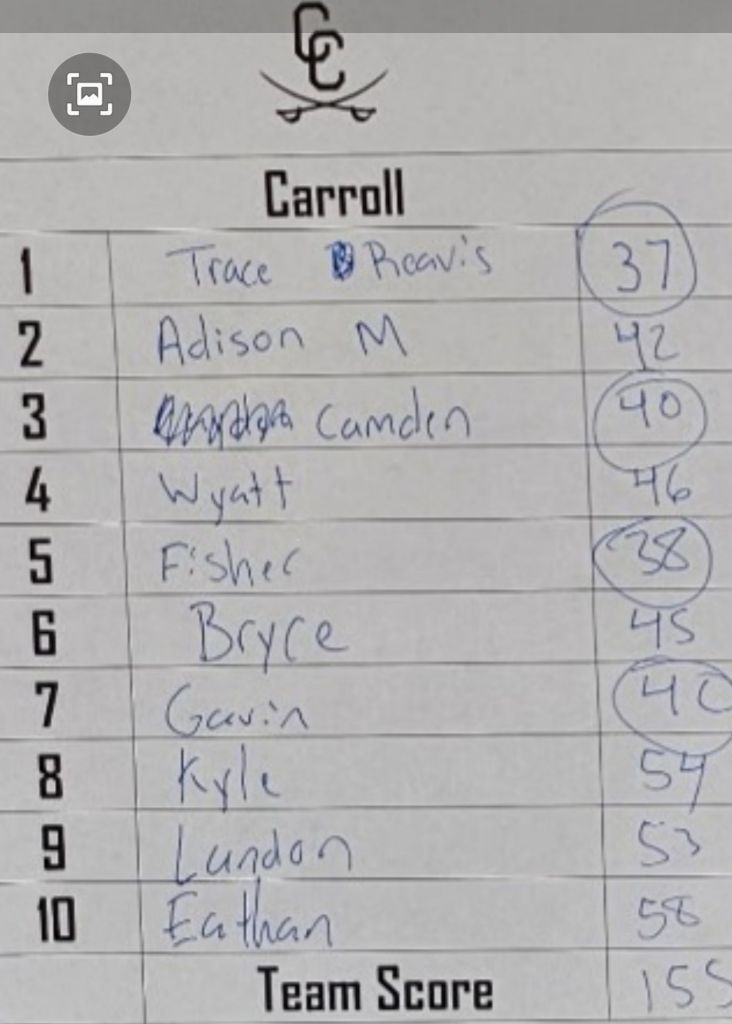 CC
Carroll
1 Trace Reavis 37
2 Adison M 42
3 Camden 40
4 Wyatt 46
5 Fisher 38
6 Bryce 45
7 Gavin 40
8 Kyle 54
9 Landon 53
10 Eathan 58
Team Score 155